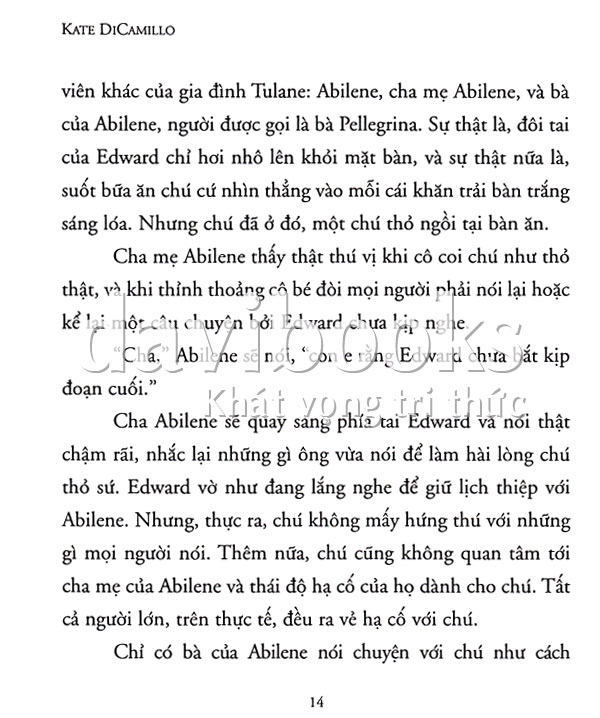 KATE DICAMILLO
viên khác của gia đình Tulane: Abilene, cha mẹ Abilene, và bà
của Abilene, người được gọi là bà Pellegrina. Sự thật là, đôi tai
của Edward chỉ hơi nhô lên khỏi mặt bàn, và sự thật nữa là,
suốt bữa ăn chú cứ nhìn thẳng vào mỗi cái khăn trải bàn trắng
sáng lóa. Nhưng chú đã ở đó, một chú thỏ ngồi tại bàn ăn.
Cha mẹ Abilene thấy thật thú vị khi cô coi chú như thỏ
thật, và khi thỉnh thoảng cô bé đòi mọi người phải nói lại hoặc
kể lại một câu chuyện bởi Edward chưa kịp nghe.
davibooks
“Cha,” Abilene sẽ nói, “con e rằng Edward chưa bắt kịp
đoạn cuối.”
Khát vọng tri thức
Cha Abilene sẽ quay sang phía tai Edward và nói thật
chậm rãi, nhắc lại những gì ông vừa nói để làm hài lòng chú
thỏ sứ. Edward vờ như đang lắng nghe để giữ lịch thiệp với
Abilene. Nhưng, thực ra, chú không mấy hứng thú với những
gì mọi người nói. Thêm nữa, chú cũng không quan tâm tới
cha mẹ của Abilene và thái độ hạ cố của họ dành cho chú. Tất
cả người lớn, trên thực tế, đều ra vẻ hạ cố với chú.
Chỉ có bà của Abilene nói chuyện với chú như cách
14